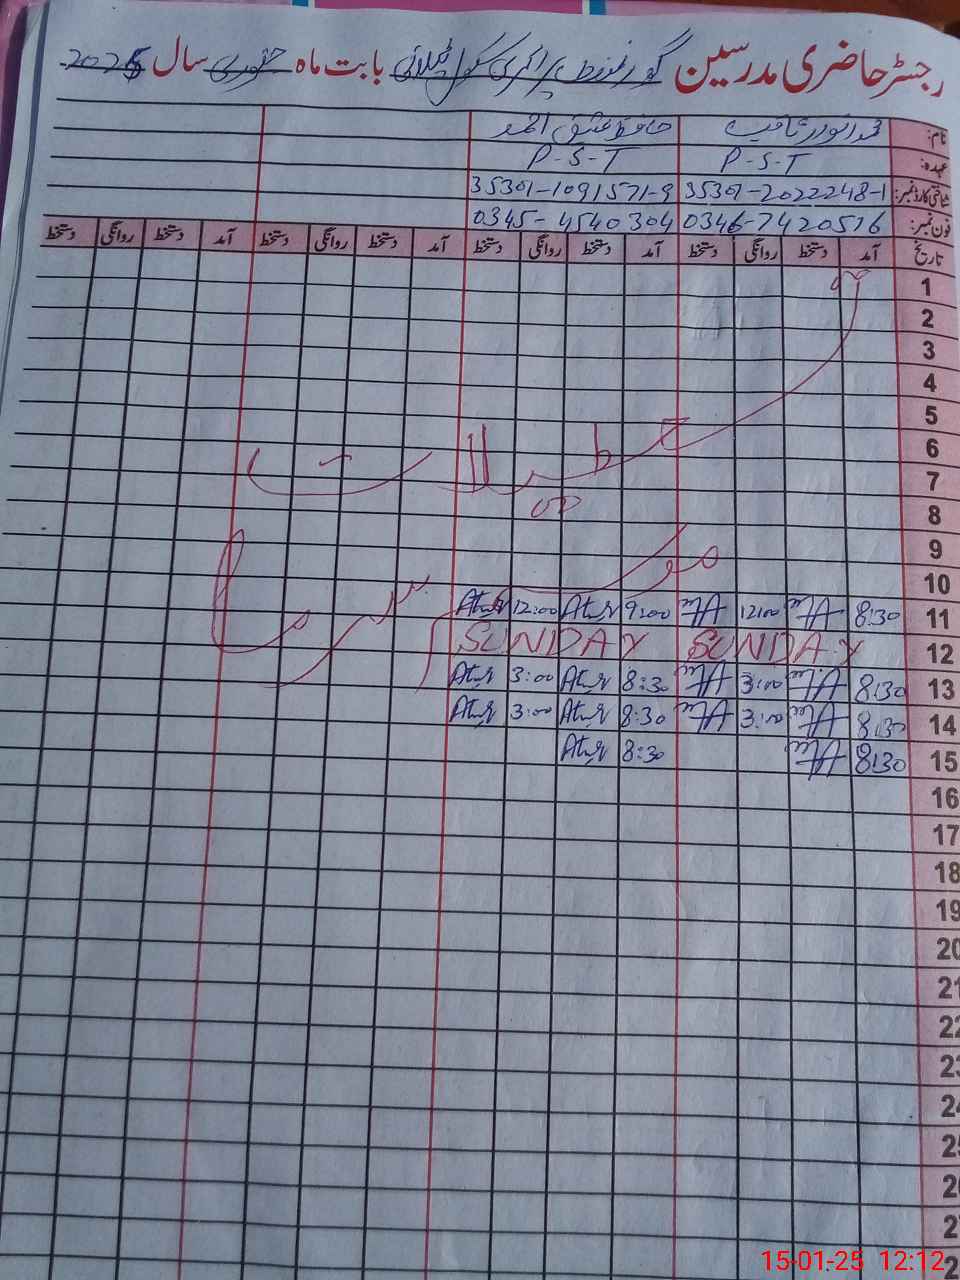 رجسٹر حاضری مدرسین گورنمنٹ پرائمری سکول بابت ماہ جنوری سال 2025
نام: محمد انور ثاقب حافظ عتیق احمد
عہدہ: P-S-T P-S-T
شناختی کارڈ نمبر: 35301-2022248-1 35301-1091571-9
فون نمبر: 0346-7420516 0345-4540304
تاریخ آمد دستخط روانگی دستخط آمد دستخط روانگی دستخط آمد دستخط روانگی دستخط آمد دستخط روانگی دستخط
1
2
3
4
5
6 تعطیلات
7
8
9
10 موسم سرما
11 8:30 12:00 9:00 Atiq 12:00 Atiq
12 SUNDAY SUNDAY
13 8:30 3:00 8:30 Atiq 3:00 Atiq
14 8:30 3:00 8:30 Atiq 3:00 Atiq
15 8:30 8:30 Atiq
16
17
18
19
20
21
22
23
24
25
26
27
2
15-01-25 12:12